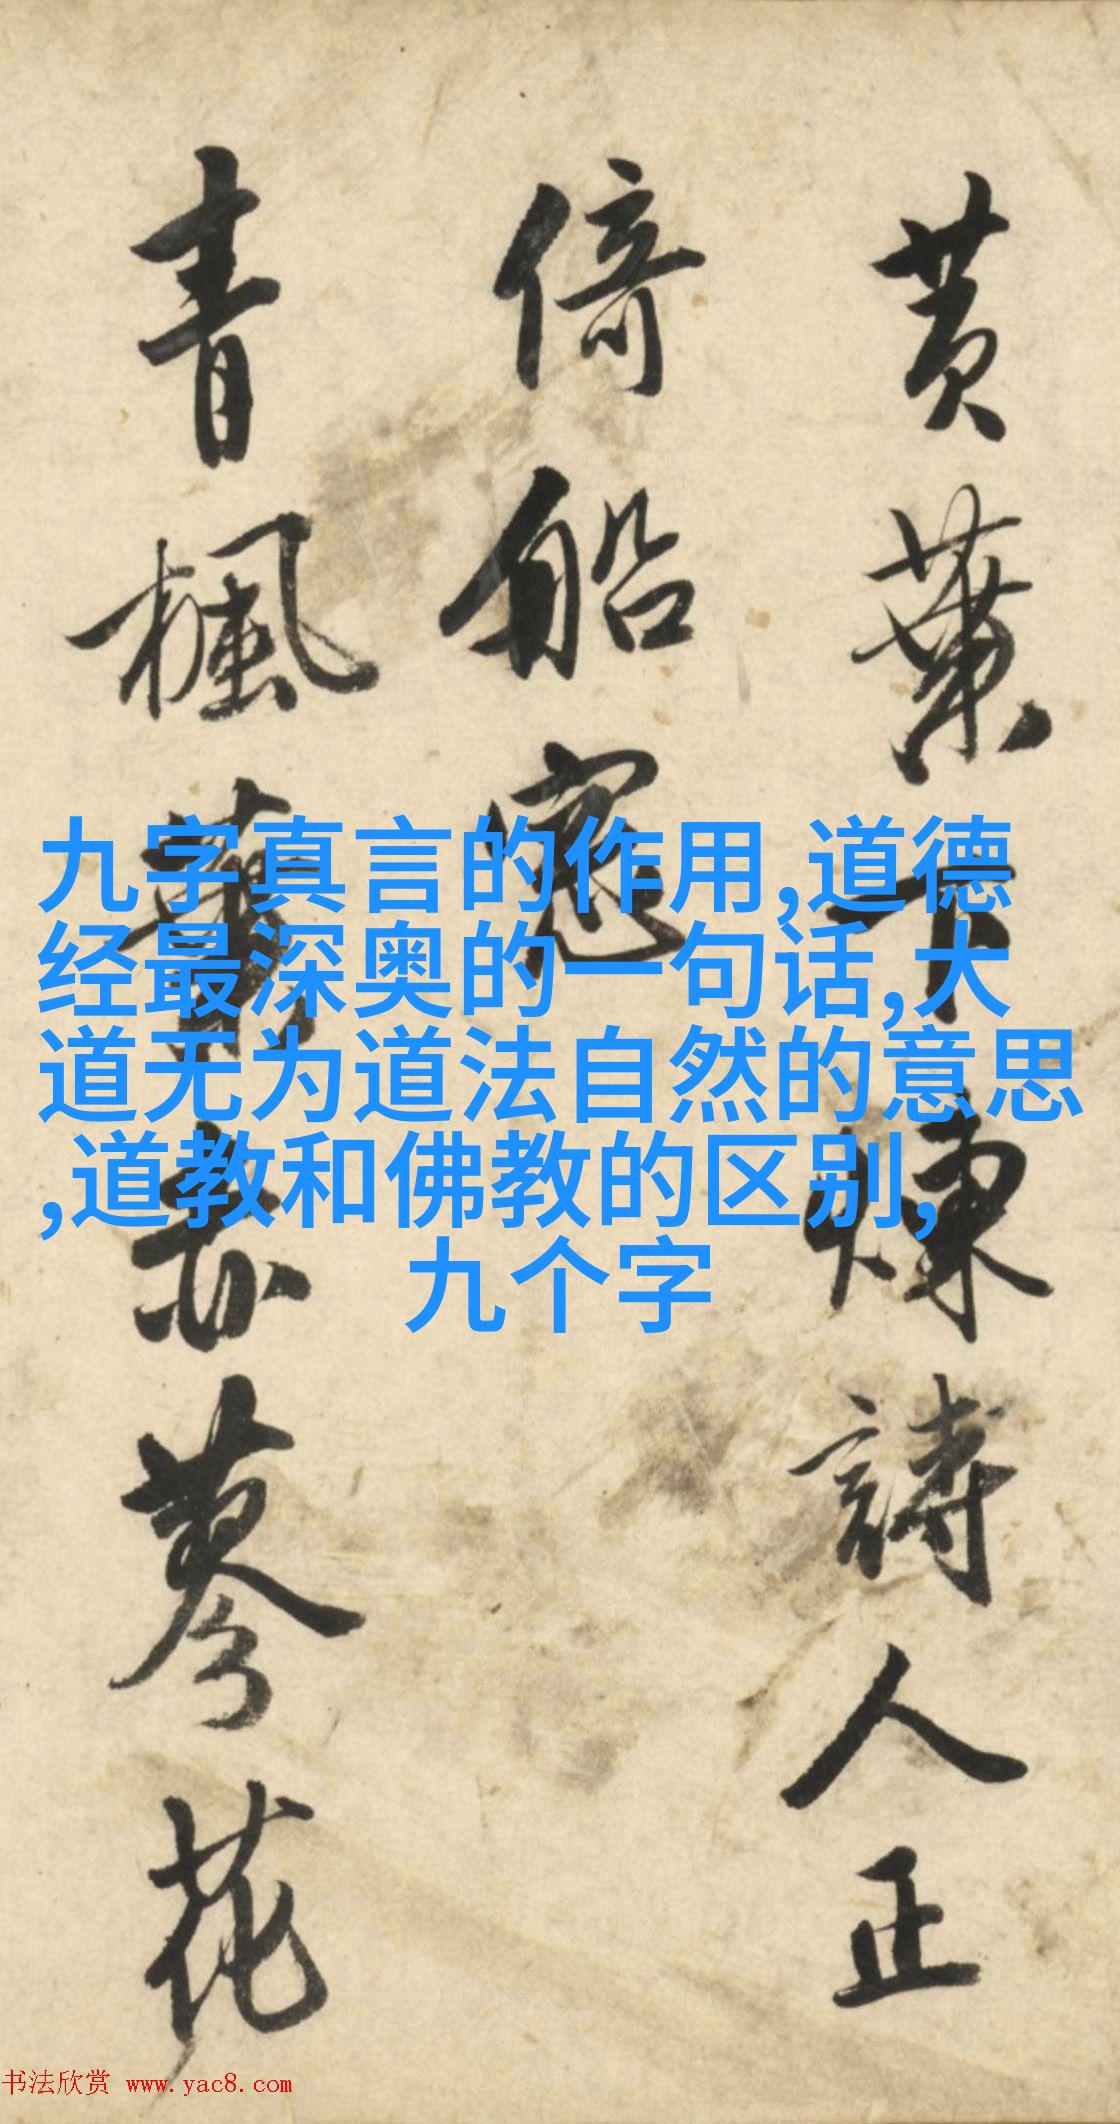 黄葉下陳詩人正
倚船窓
青楓葉赤蓼花
九字真言的作用,道德
经最深奥的一句话,大
道无为道法自然的意思
,道教和佛教的区别,
九个字
书法欣赏 www.yac8.com